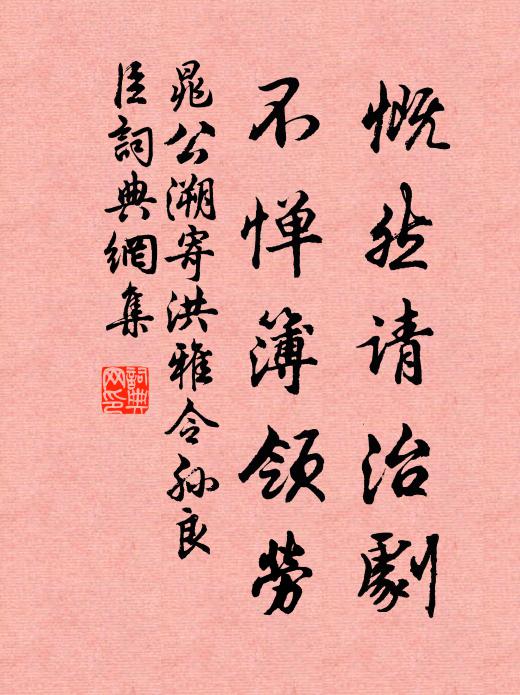 慨然请治劇
不惮簿领勞
晁公溯寄洪雅令孙良
臣詞典網集
詞典網印